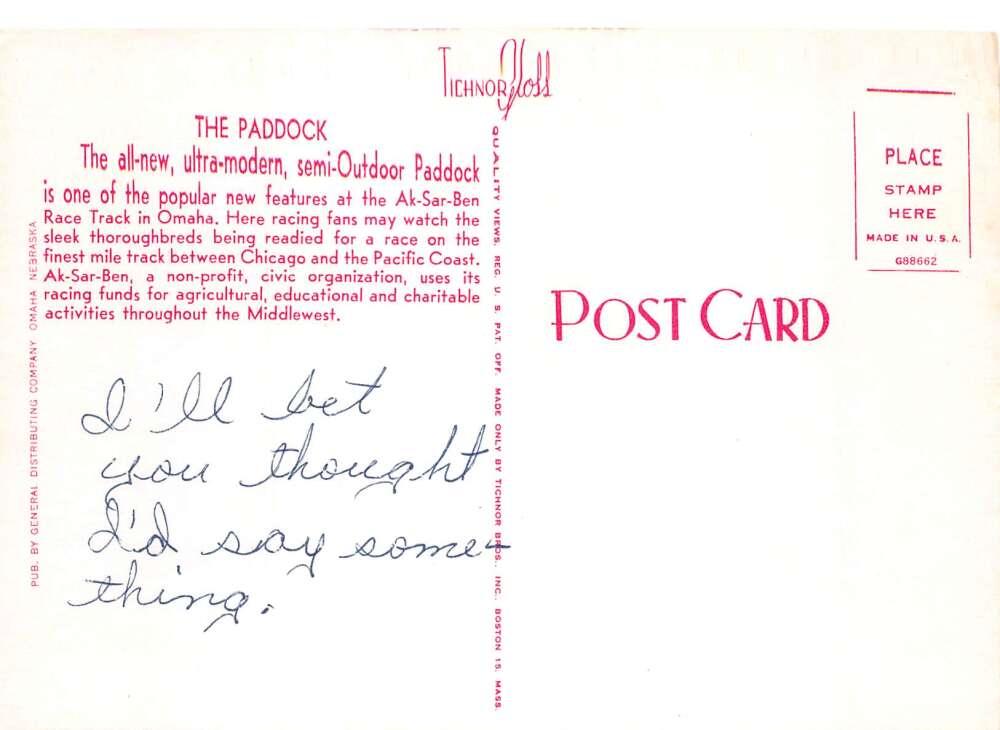 TICHNOR Gloss
THE PADDOCK
The all-new, ultra-modern, semi-Outdoor Paddock
is one of the popular new features at the Ak-Sar-Ben
Race Track in Omaha. Here racing fans may watch the
sleek thoroughbreds being readied for a race on the
finest mile track between Chicago and the Pacific Coast.
Ak-Sar-Ben, a non-profit, civic organization, uses its
racing funds for agricultural, educational and charitable
activities throughout the Middlewest.
I'll bet
you thought
I'd say some-
thing.
PUB. BY GENERAL DISTRIBUTING COMPANY OMAHA NEBRASKA
QUALITY VIEWS. REG. U. S. PAT. OFF. MADE ONLY BY TICHNOR BROS., INC., BOSTON 15, MASS.
POST CARD
PLACE
STAMP
HERE
MADE IN U.S.A.
G88662